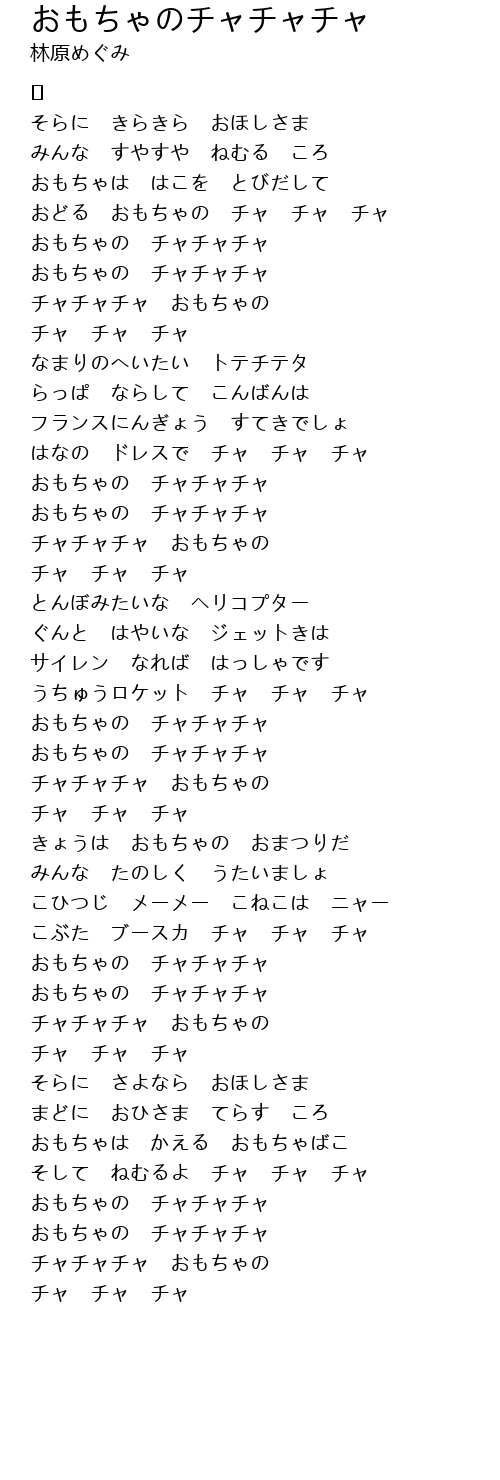 おもちゃのチャチャチャ
林原めぐみ
そらに　きらきら　おほしさま
みんな　すやすや　ねむる　ころ
おもちゃは　はこを　とびだして
おどる　おもちゃの　チャ　チャ　チャ
おもちゃの　チャチャチャ
おもちゃの　チャチャチャ
チャチャチャ　おもちゃの
チャ　チャ　チャ
なまりのへいたい　トテチテタ
らっぱ　ならして　こんばんは
フランスにんぎょう　すてきでしょ
はなの　ドレスで　チャ　チャ　チャ
おもちゃの　チャチャチャ
おもちゃの　チャチャチャ
チャチャチャ　おもちゃの
チャ　チャ　チャ
とんぼみたいな　ヘリコプター
ぐんと　はやいな　ジェットきは
サイレン　なれば　はっしゃです
うちゅうロケット　チャ　チャ　チャ
おもちゃの　チャチャチャ
おもちゃの　チャチャチャ
チャチャチャ　おもちゃの
チャ　チャ　チャ
きょうは　おもちゃの　おまつりだ
みんな　たのしく　うたいましょ
こひつじ　メーメー　こねこは　ニャー
こぶた　ブースカ　チャ　チャ　チャ
おもちゃの　チャチャチャ
おもちゃの　チャチャチャ
チャチャチャ　おもちゃの
チャ　チャ　チャ
そらに　さよなら　おほしさま
まどに　おひさま　てらす　ころ
おもちゃは　かえる　おもちゃばこ
そして　ねむるよ　チャ　チャ　チャ
おもちゃの　チャチャチャ
おもちゃの　チャチャチャ
チャチャチャ　おもちゃの
チャ　チャ　チャ